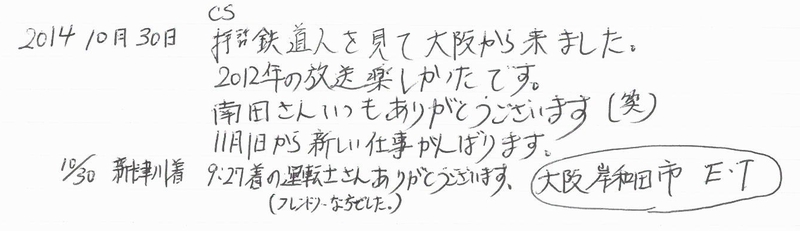 CS
2014 10月30日 拝啓鉄道人を見て大阪から来ました。
2012年の放送楽しかったです。
南田さんいつもありがとうございます(笑)
11月1日から新しい仕事がんばります。
10/30 新津川着 9:27着の運転士さんありがとうございます、 大阪岸和田市 E・T
(フレンドリーな方でした。)